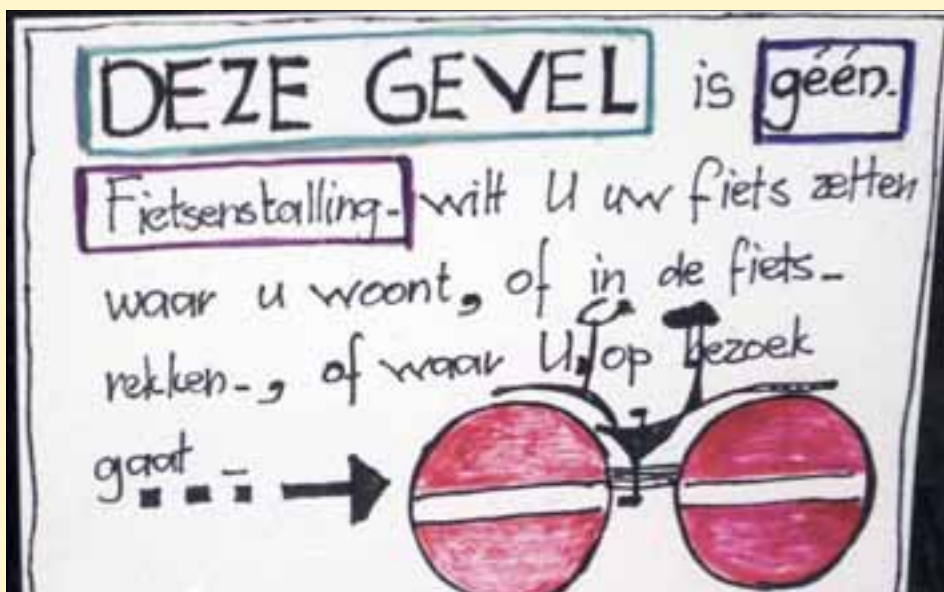 DEZE GEVEL is géén.
Fietsenstalling- wilt U uw fiets zetten
waar u woont, of in de fiets-
rekken-, of waar U, op bezoek
gaat -